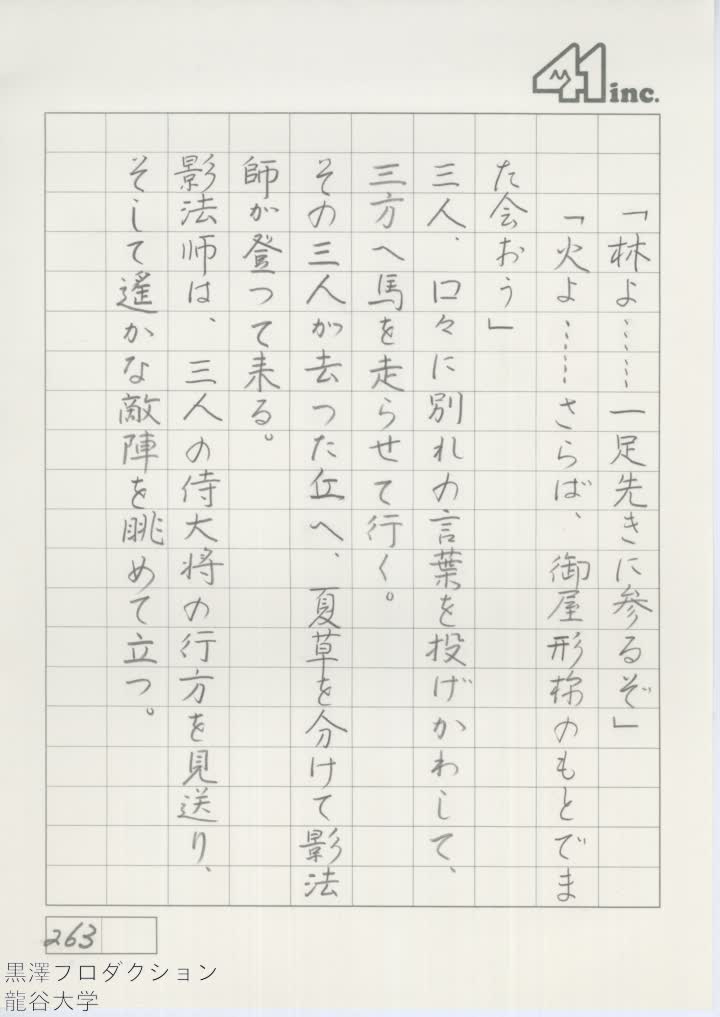 41 inc.
「林よ……一足先きに参るぞ」
「火よ……さらば、御屋形様のもとでま
た会おう」
三人、口々に別れの言葉を投げかわして、
三方へ馬を走らせて行く。
その三人が去つた丘へ、夏草を分けて影法
師が登つて来る。
影法師は、三人の侍大将の行方を見送り、
そして遙かな敵陣を眺めて立つ。
263
黒澤プロダクション
龍谷大学